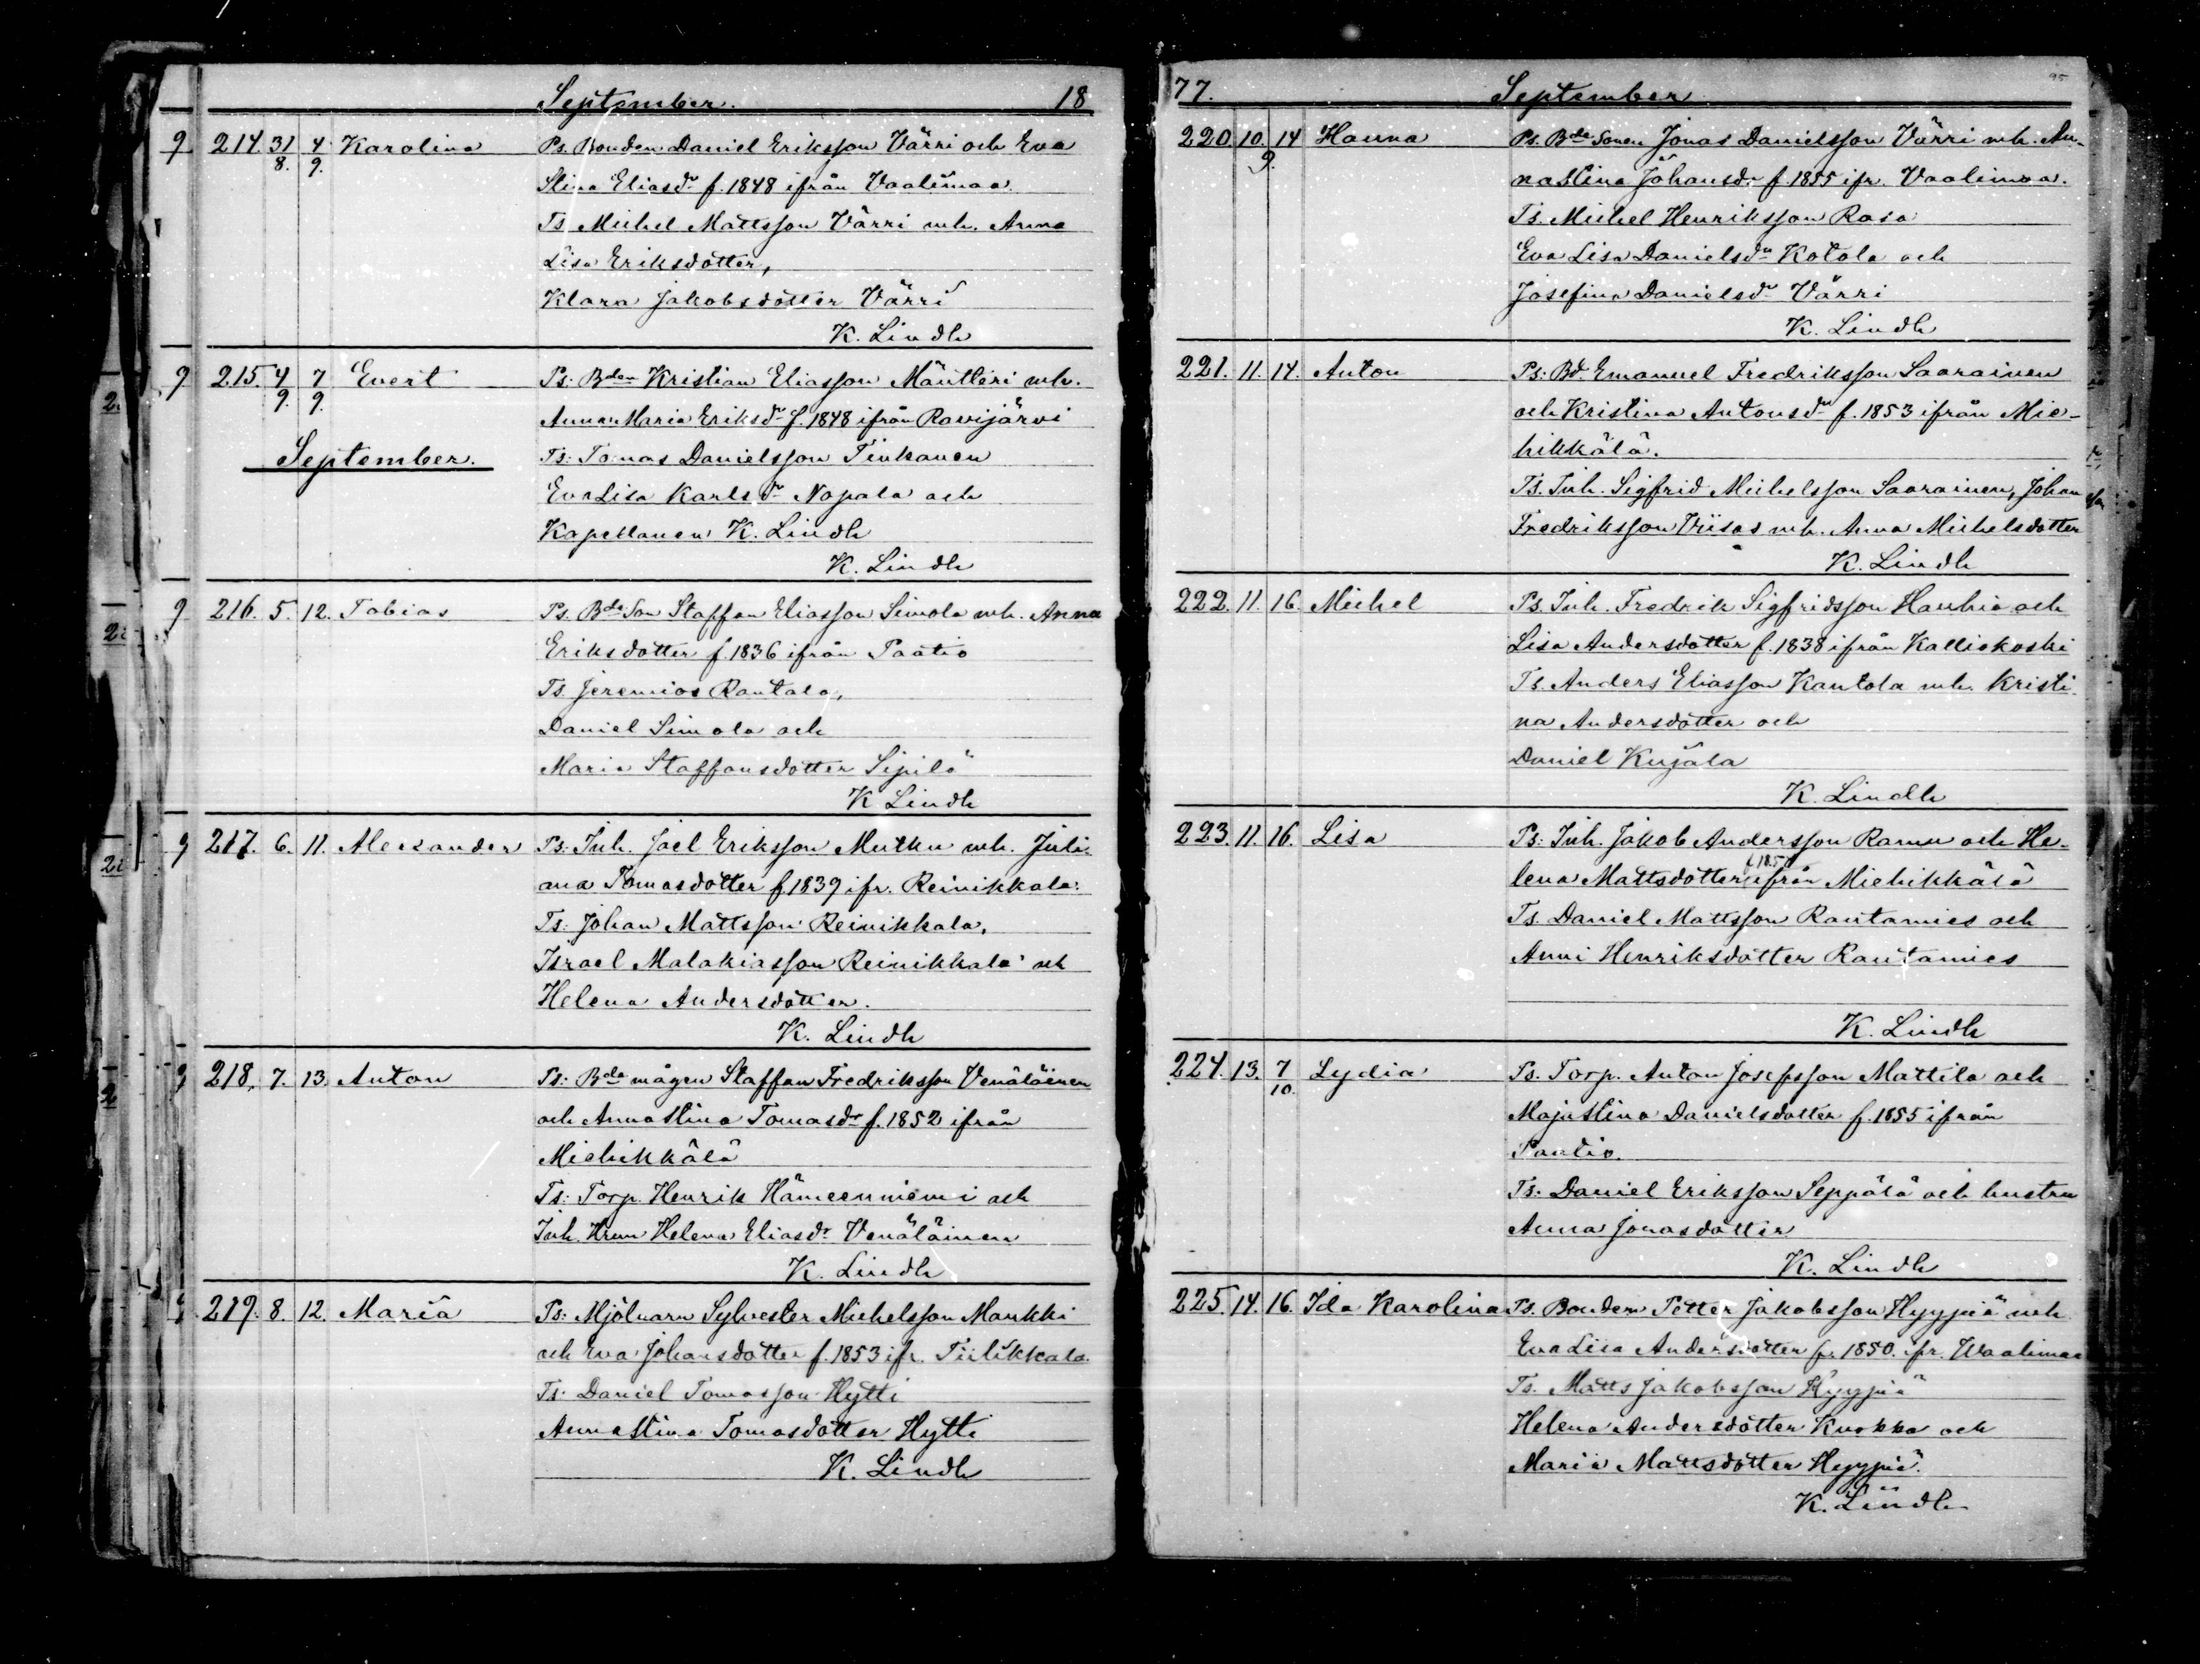 September. 18
9 214. 31/8. 4/9. Karolina Ps. Bonden Daniel Eriksson Värri och Eva
Stina Eliasdr f. 1848 ifrån Vaalimaa.
Ts Michel Mattsson Värri mh. Anna
Lisa Eriksdotter,
Klara Jakobsdotter Värri
K. Lindh
9 215. 4/9. 7/9. Evert Ps: Bden Kristian Eliasson Mänttäri mh.
Anna Maria Eriksdr f. 1848 ifrån Ravijärvi
September. Ts: Tomas Danielsson Tinkanen
Eva Lisa Karlsdr Nopala och
Kapellanen K. Lindh
K. Lindh
9 216. 5. 12. Tobias Ps. Bde Son Staffan Eliasson Simola mh. Anna
Eriksdotter f. 1836 ifrån Paatio
Ts. Jeremias Rantala,
Daniel Simola och
Maria Staffansdotter Sipilä
K Lindh
9 217. 6. 11. Alexander Ps: Inh. Joel Eriksson Mutku mh. Juli-
ana Tomasdotter f 1839 ifr. Reinikkala.
Ts: Johan Mattsson Reinikkala,
Israel Malakiasson Reinikkala och
Helena Andersdotter.
K. Lindh
9 218. 7. 13. Anton Ps: Bde mågen Staffan Fredriksson Venäläinen
och Anna Stina Tomasdr f. 1852 ifrån
Miehikkälä
Ts: Torp. Henrik Hämeenniemi och
Inh. Hrun Helena Eliasdr Venäläinen
K. Lindh
9 219. 8. 12. Maria Ps: Mjölnarn Sylvester Michelsson Maukki
och Eva Johansdotter f. 1853 ifr. Tiilikkala.
Ts: Daniel Tomasson Hytti
Anna Stina Tomasdotter Hytti
K. Lindh
77. September 95
220. 10/9. 14 Hanna Ps. Bde Sonen Jonas Danielsson Värri mh. An-
na Stina Johansdr f 1855 ifr. Vaalimaa.
Ts. Michel Henriksson Rasa
Eva Lisa Danielsdr Kotola och
Josefina Danielsdr Värri
K. Lindh
221. 11. 14. Anton Ps: Bd. Emanuel Fredriksson Saarainen
och Kristina Antonsdr f. 1853 ifrån Mie-
hikkälä.
Ts. Inh. Sigfrid Michelsson Saarainen, Johan
Fredriksson Viisas mh. Anna Michelsdotter
K. Lindh
222. 11. 16. Michel Ps. Inh. Fredrik Sigfridsson Hauhia och
Lisa Andersdotter f. 1838 ifrån Kalliokoski
Ts. Anders Eliasson Kantola mh. Kristi-
na Andersdotter och
Daniel Kujala
K. Lindh
223. 11. 16. Lisa Ps: Inh. Jakob Andersson Ramu och He-
lena Mattsdotter ifrån Miehikkälä
Ts. Daniel Mattsson Rautamies och
Anni Henriksdotter Rautamies
K. Lindh
224. 13. 7/10. Lydia Ps. Torp. Anton Josefsson Mattila och
Maja Stina Danielsdotter f. 1855 ifrån
Paatio.
Ts: Daniel Eriksson Seppälä och hustru
Anna Jonasdotter
K. Lindh
225. 14. 16. Ida Karolina Ps. Bonden Petter Jakobsson Hyypiä mh
Eva Lisa Andersdotter f. 1850. ifr. Waalimaa
Ts. Matts Jakobsson Hyypiä
Helena Andersdotter Kuokka och
Maria Mattsdotter Hyypiä.
K. Lindh